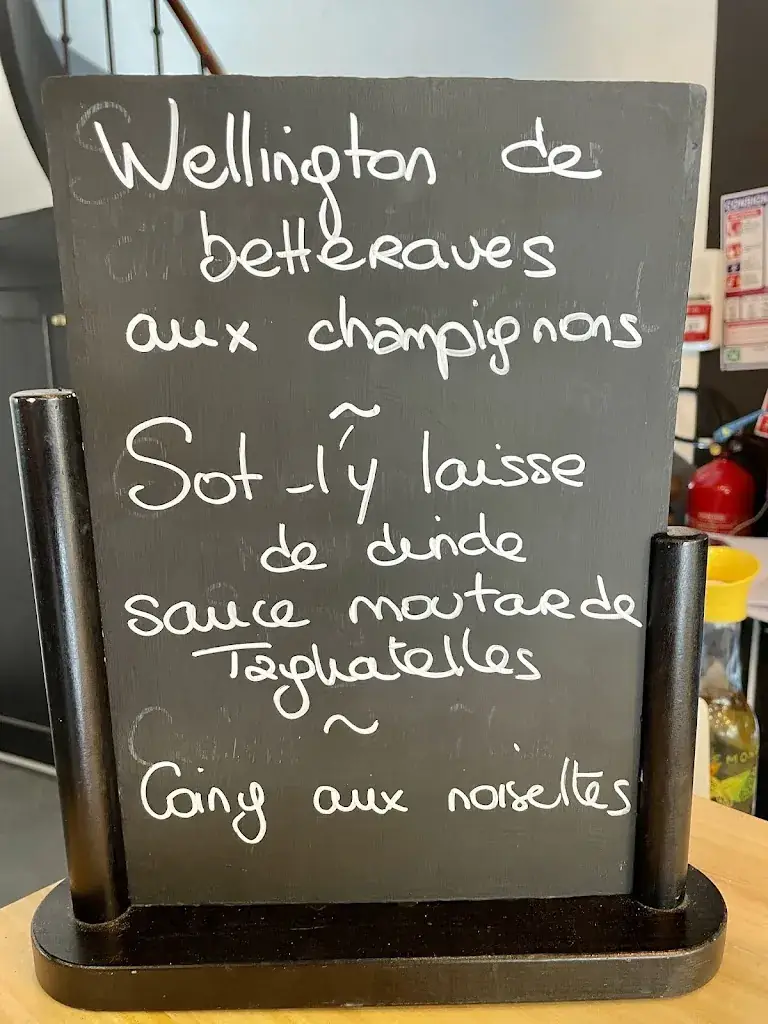 Wellington de
betteraves
aux champignons
~
Sot-l'y laisse
de dinde
sauce moutarde
Tagliatelles
~
Coing aux noisettes
CONSIGN